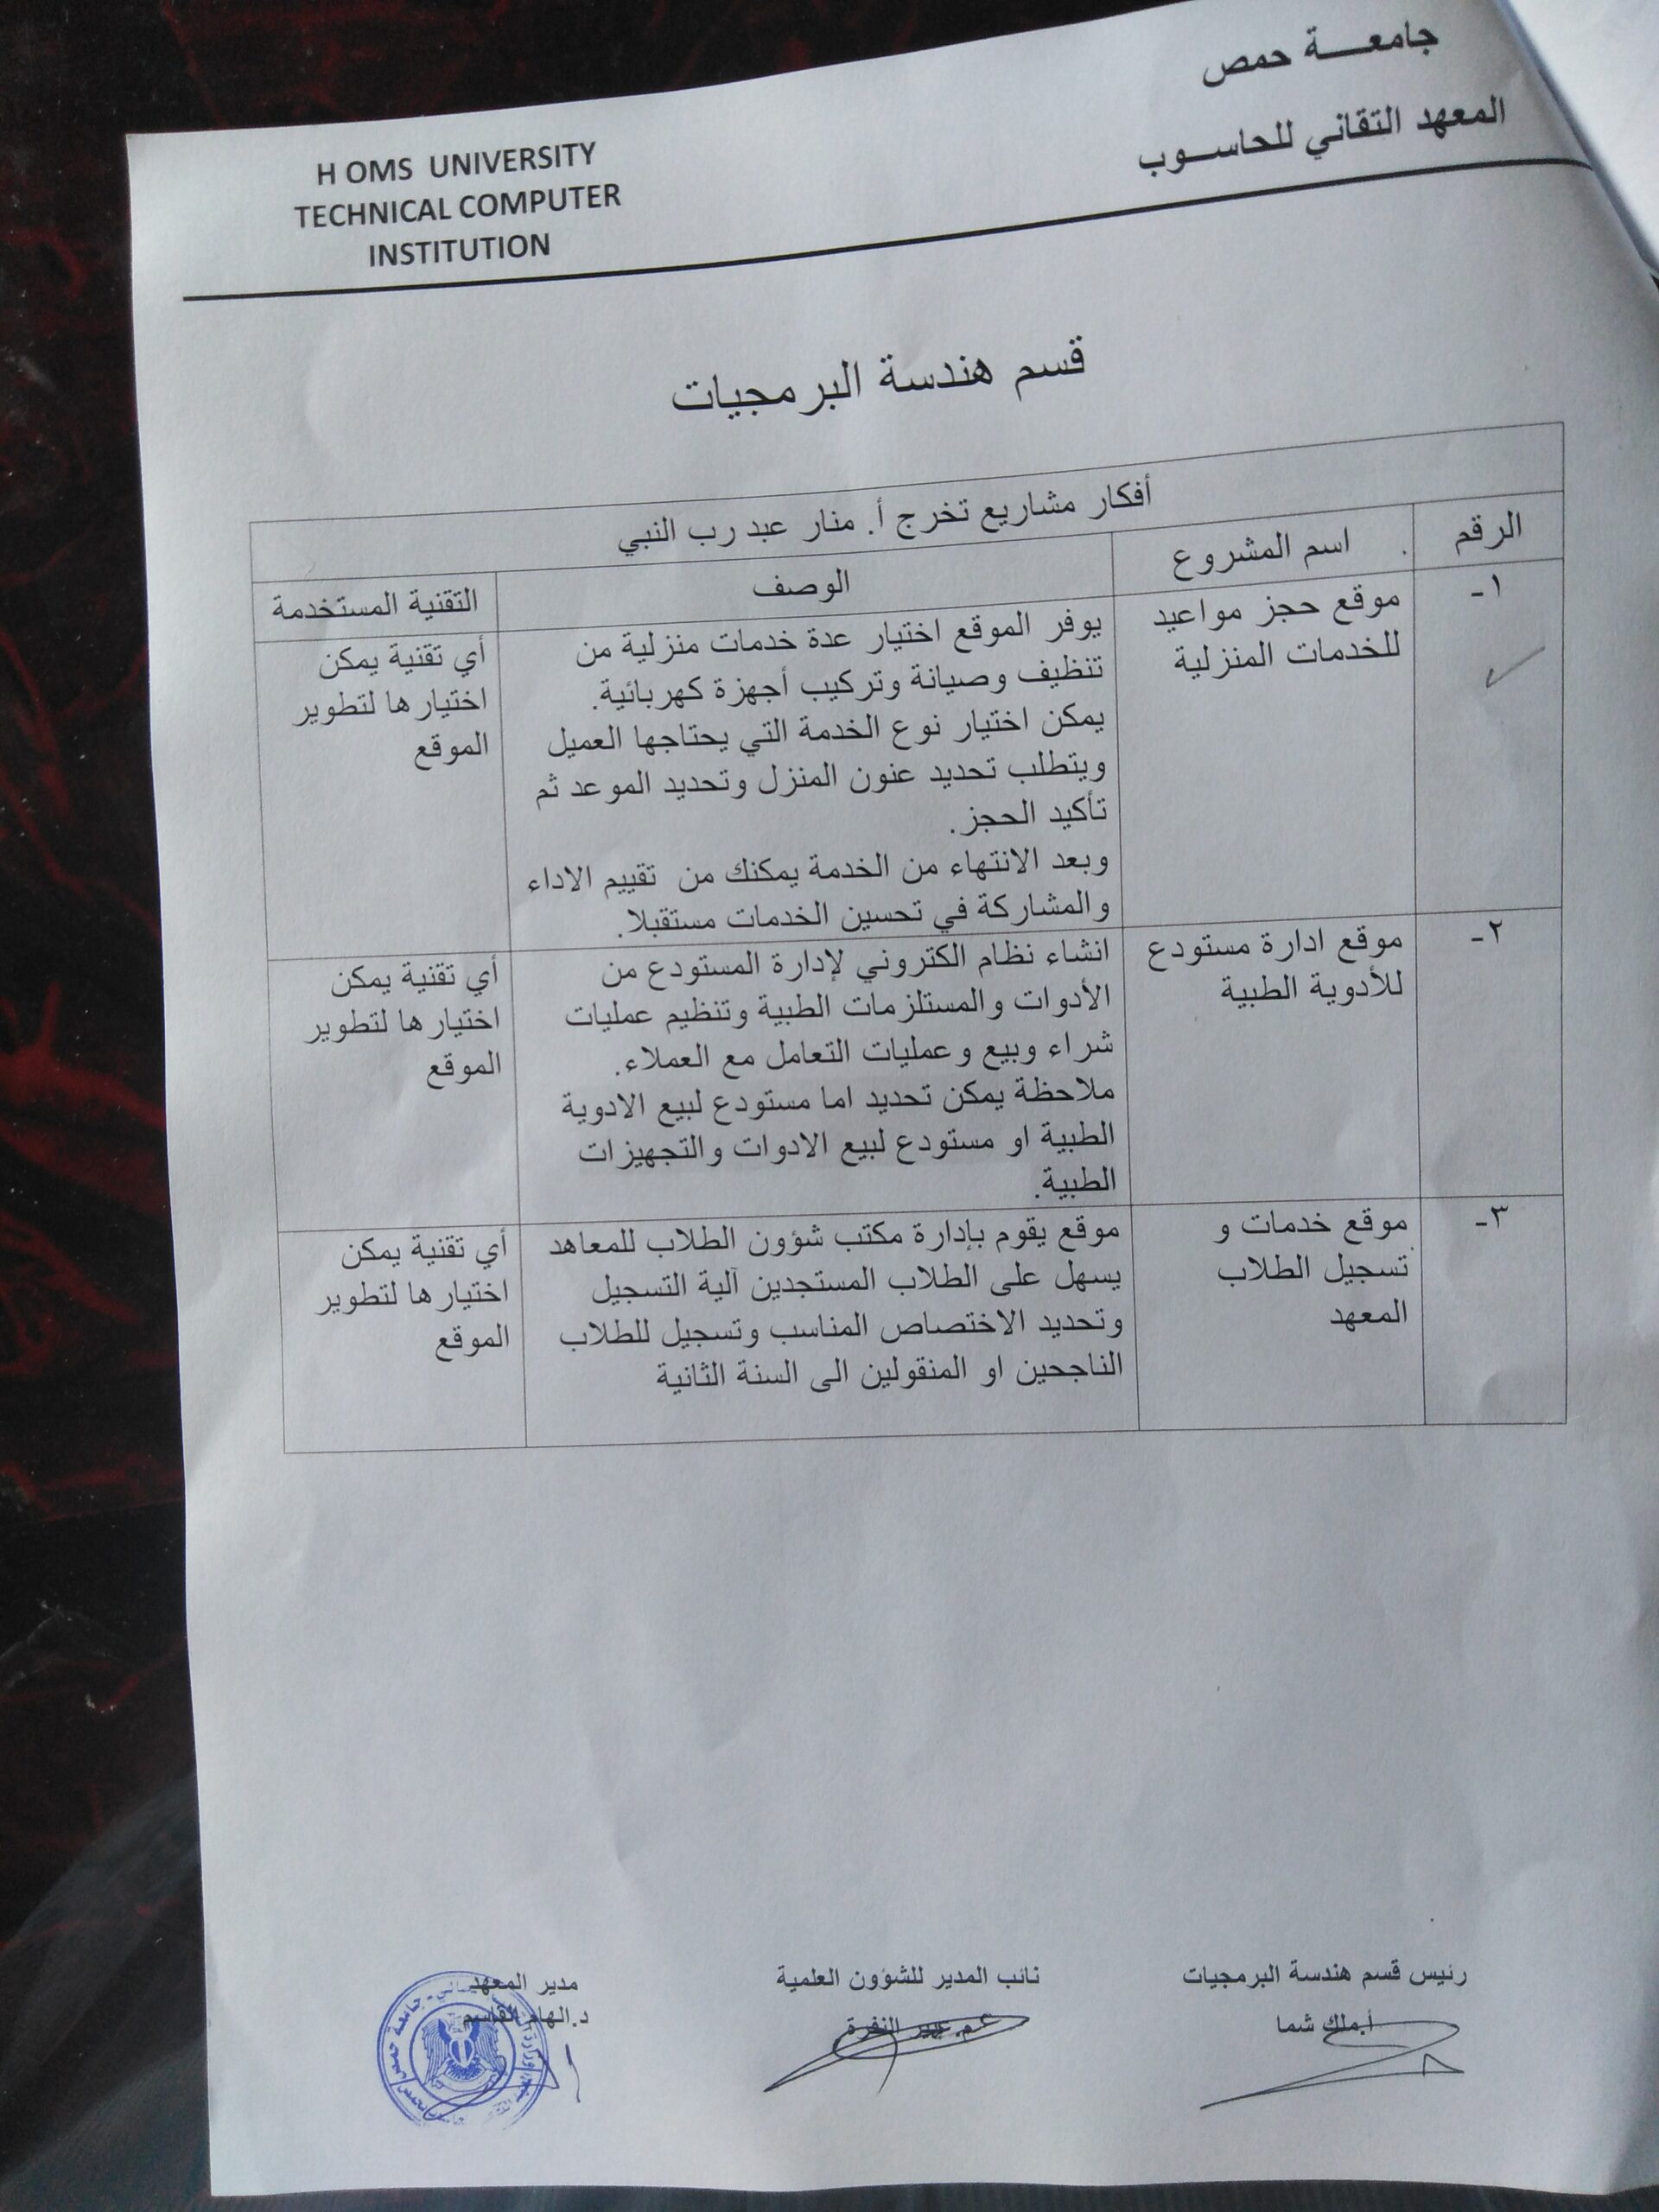 جامعـــــة حمص
المعهد التقاني للحاســوب
H OMS UNIVERSITY
TECHNICAL COMPUTER
INSTITUTION
قسم هندسة البرمجيات
أفكار مشاريع تخرج أ. منار عبد رب النبي
الرقم
اسم المشروع
الوصف
التقنية المستخدمة
١-
موقع حجز مواعيد
للخدمات المنزلية
يوفر الموقع اختيار عدة خدمات منزلية من
تنظيف وصيانة وتركيب أجهزة كهربائية.
يمكن اختيار نوع الخدمة التي يحتاجها العميل
ويتطلب تحديد عنون المنزل وتحديد الموعد ثم
تأكيد الحجز.
وبعد الانتهاء من الخدمة يمكنك من تقييم الاداء
والمشاركة في تحسين الخدمات مستقبلا.
أي تقنية يمكن
اختيارها لتطوير
الموقع
٢-
موقع ادارة مستودع
للأدوية الطبية
انشاء نظام الكتروني لإدارة المستودع من
الأدوات والمستلزمات الطبية وتنظيم عمليات
شراء وبيع وعمليات التعامل مع العملاء.
ملاحظة يمكن تحديد اما مستودع لبيع الادوية
الطبية او مستودع لبيع الادوات والتجهيزات
الطبية.
أي تقنية يمكن
اختيارها لتطوير
الموقع
٣-
موقع خدمات و
تسجيل الطلاب
المعهد
موقع يقوم بإدارة مكتب شؤون الطلاب للمعاهد
يسهل على الطلاب المستجدين آلية التسجيل
وتحديد الاختصاص المناسب وتسجيل للطلاب
الناجحين او المنقولين الى السنة الثانية
أي تقنية يمكن
اختيارها لتطوير
الموقع
رئيس قسم هندسة البرمجيات
أ.ملك شما
نائب المدير للشؤون العلمية
عبير النفرة
مدير المعهد
د.الهام القاسم